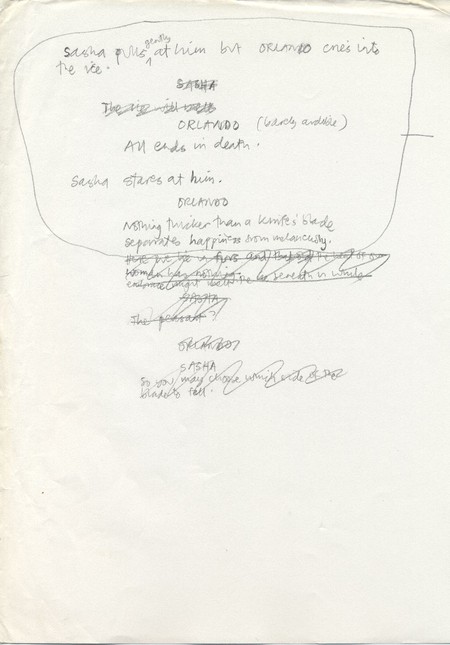 Sasha pulls gently at him but ORLANDO cries into
the ice.
SASHA
The ice will
ORLANDO (barely audible)
All ends in death.
Sasha stares at him.
ORLANDO
Nothing thicker than a knife's blade
separates happiness from melancholy.
Here we lie in furs and
woman has nothing.
embrace might
SASHA
The peasant?
ORLANDO
SASHA
So you may choose which side of the
blade to fall.